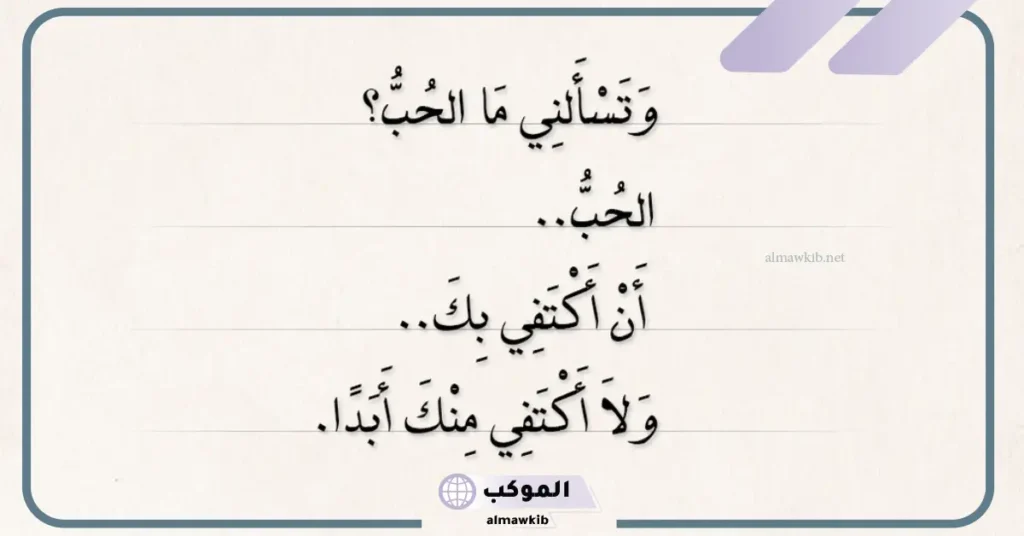 وَتَسْأَلنِي مَا الحُبُّ؟
الحُبُّ..
almawkib.net
أَنْ أَكْتَفِي بِكَ..
وَلاَ أَكْتَفِي مِنْكَ أَبَدًا.
الموكب
almawkib